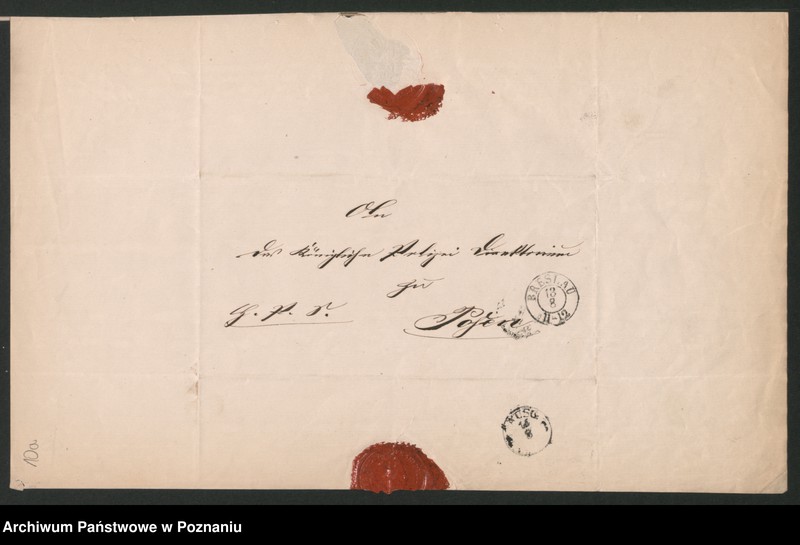 An
das Königliche Polizei Direktorium
zu
H. P. S.
Posen
BRESLAU
12
8
11-12
AUSG.
8
10a.
Archiwum Państwowe w Poznaniu